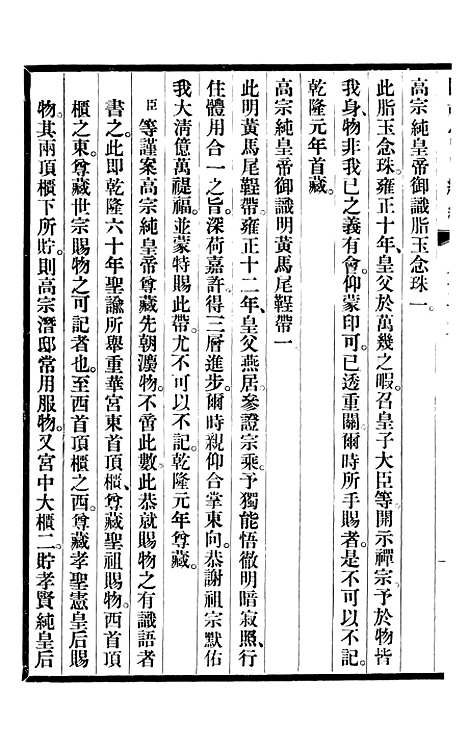 高宗純皇帝御識脂玉念珠一。
此脂玉念珠。雍正十年、皇父於萬幾之暇。召皇子大臣等開示禪宗。予於物皆
我身、物非我已之義有會。仰蒙印可。已透重關。爾時所手賜者。是不可以不記。
乾隆元年首藏。
高宗純皇帝御識明黃馬尾鞓帶一
此明黃馬尾鞓帶。雍正十二年、皇父燕居。參證宗乘。予獨能悟徹明暗寂照、行
住體用合一之旨。深荷嘉許。得三層進步。爾時親仰合掌東向。恭謝祖宗默佑
我大清億萬禔福。並蒙特賜此帶。尤不可以不記。乾隆元年尊藏。
臣等謹案高宗純皇帝尊藏先朝澤物。不啻此數。此恭就賜物之有識語者
書之。此即乾隆六十年聖諭所舉重華宮東首頂櫃、尊藏聖祖賜物。西首頂
櫃之東。尊藏世宗賜物之可記者也。至西首頂櫃之西。尊藏孝聖憲皇后賜
物。其兩頂櫃下所貯。則高宗潛邸常用服物。又宮中大櫃二。貯孝賢純皇后